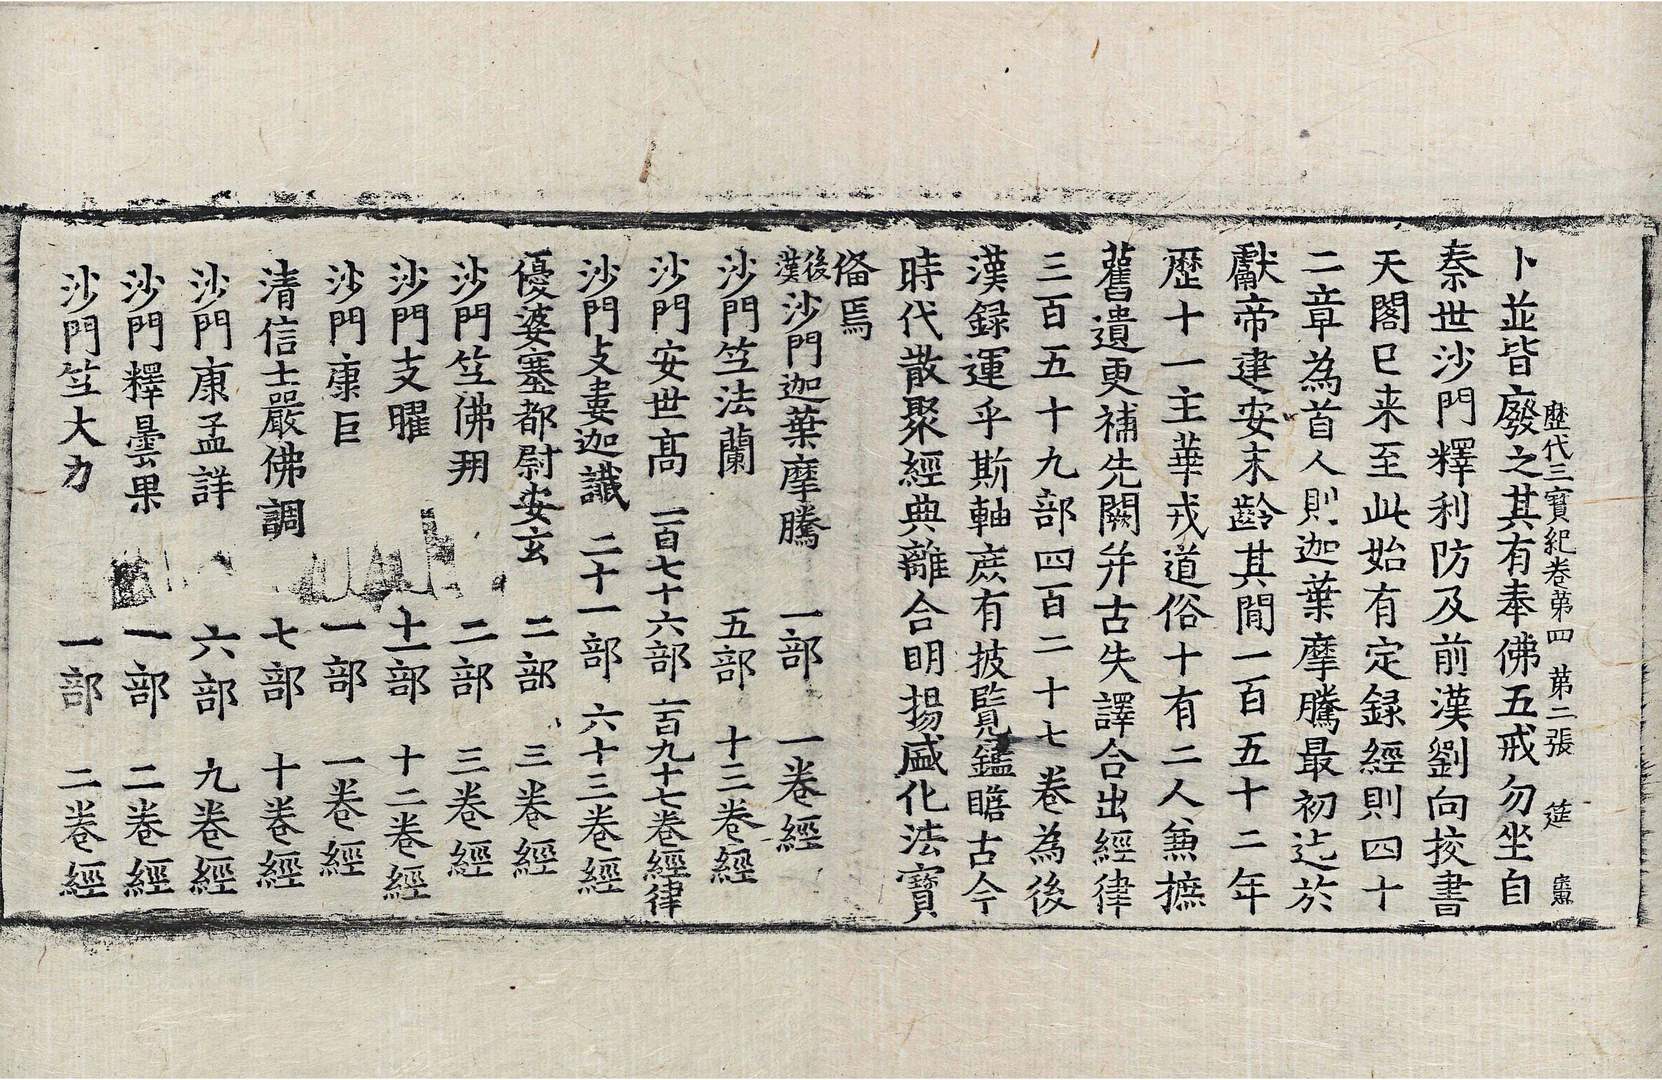 歷代三寳紀卷苐四　苐二張　筵
卜並皆廢之其有奉佛五戒勿坐自
秦世沙門釋利防及前漢劉向挍書
天閣已来至此始有定録經則四十
二章為首人則迦葉摩騰最初迄於
獻帝建安末齡其閒一百五十二年
歷十一主華戎道俗十有二人兼摭
舊遺更補先闕并古失譯合出經律
三百五十九部四百二十七卷為後
漢録運乎斯軸庶有披覧鑑瞻古今
時代散聚經典離合明揚盛化法寶
俻焉
後漢沙門迦葉摩騰　一部　一卷經
沙門笁法蘭　五部　十三卷經
沙門安世髙　一百七十六部　一百九十七卷經律
沙門支婁迦讖　二十一部　六十三卷經
優婆塞都尉安玄　二部　三卷經
沙門笁佛朔　二部　三卷經
沙門支曜　十一部　十二卷經
沙門康巨　一部　一卷經
清信士嚴佛調　七部　十卷經
沙門康孟詳　六部　九卷經
沙門釋曇果　一部　二卷經
沙門笁大力　一部　二卷經